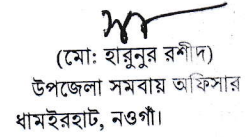 (মো: হারুনুর রশীদ)
উপজেলা সমবায় অফিসার
ধামইরহাট, নওগাঁ।